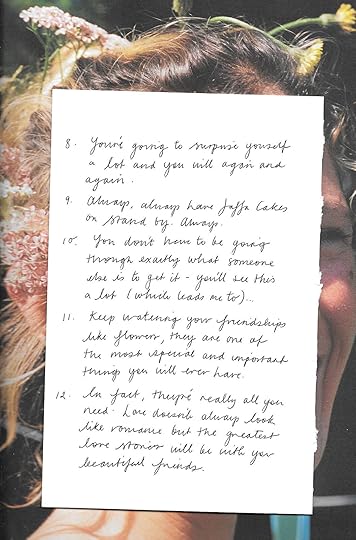 8. You're going to surprise yourself
a lot and you will again and
again.
9. Always, always have Jaffa Cakes
on stand by. Always.
10. You don't have to be going
through exactly what someone
else is to get it - you'll see this
a lot (which leads me to)...
11. Keep watering your friendships
like flowers, they are one of
the most special and important
things you will ever have.
12. In fact, they're really all you
need. Love doesn't always look
like romance but the greatest
love stories will be with your
beautiful friends.